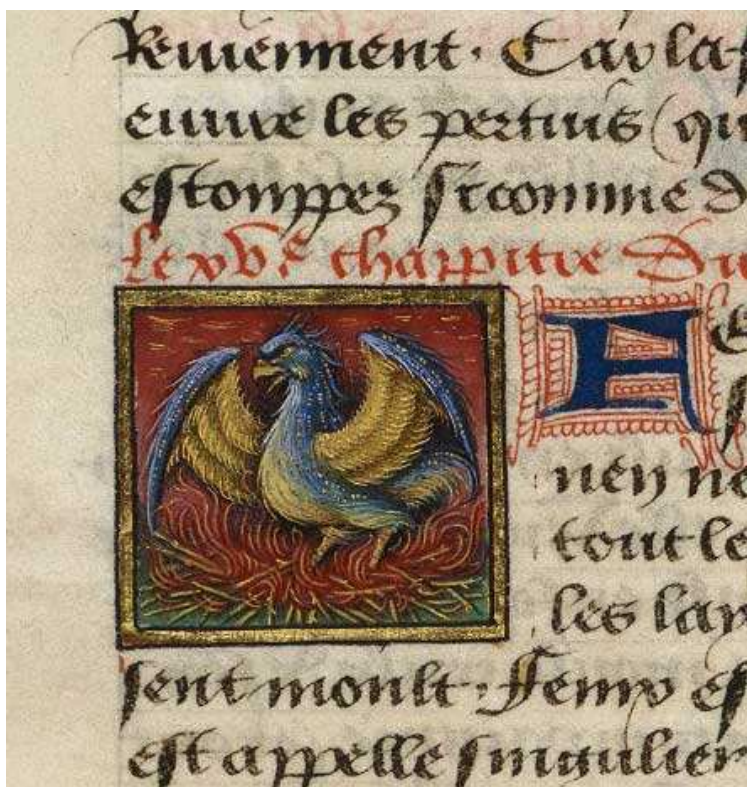 Reviennent. Car la
euvre les pertuis qu
estouppez sicomme d
Le xvᵉ chappitre Du
A
uen ne
tout le
les lay
sent moult. Fenix es
est appelle singulier